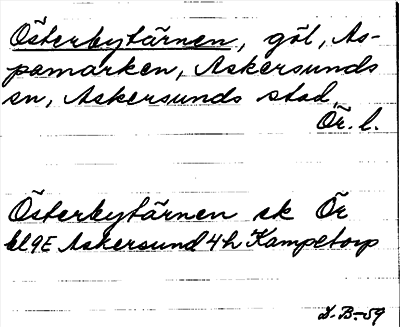 Österbytärnen, göl, As-
pamarken, Askersunds
sn, Askersunds stad,
Ör. l.
Österbytärnen ek Ör
bl 9E Askersund 4h Kampetorp
D.B.-59